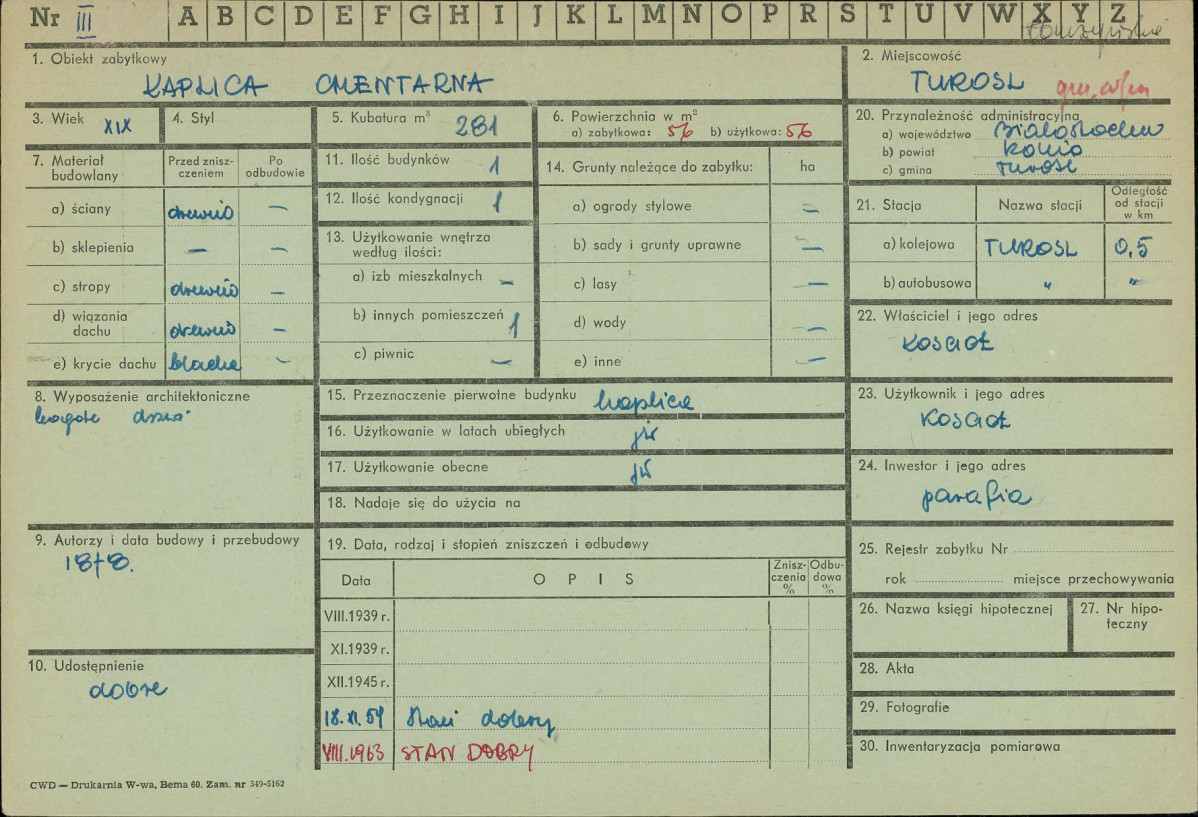 Nr III A B C D E F G H I J K L M N O P R S T U V W X Y Z
1. Obiekt zabytkowy
KAPLICA CMENTARNA
2. Miejscowość
TUROSL
3. Wiek XIX
4. Styl
5. Kubatura m³ 281
6. Powierzchnia w m²
a) zabytkowa: 56 b) użytkowa: 56
20. Przynależność administracyjna
a) województwo Białostockie
b) powiat Kolno
c) gmina Turośl
7. Materiał budowlany
Przed zniszczeniem
Po odbudowie
a) ściany drewno —
b) sklepienia — —
c) stropy drewno —
d) wiązania dachu drewno —
e) krycie dachu blacha —
11. Ilość budynków 1
12. Ilość kondygnacji 1
13. Użytkowanie wnętrza według ilości:
a) izb mieszkalnych —
b) innych pomieszczeń 1
c) piwnic —
14. Grunty należące do zabytku: ha
a) ogrody stylowe —
b) sady i grunty uprawne —
c) lasy —
d) wody —
e) inne —
21. Stacja Nazwa stacji Odległość od stacji w km
a) kolejowa TUROSL 0,5
b) autobusowa " "
22. Właściciel i jego adres
KOSCIOŁ
8. Wyposażenie architektoniczne
15. Przeznaczenie pierwotne budynku kaplica
16. Użytkowanie w latach ubiegłych jw
17. Użytkowanie obecne jw
18. Nadaje się do użycia na
23. Użytkownik i jego adres
KOSCIOŁ
24. Inwestor i jego adres
parafia
9. Autorzy i data budowy i przebudowy
1878.
10. Udostępnienie
dobre
19. Data, rodzaj i stopień zniszczeń i odbudowy
Data OPIS Zniszczenia % Odbudowa %
VIII.1939 r.
XI.1939 r.
XII.1945 r.
18.XI.59 Stan dobry
VIII.1963 STAN DOBRY
25. Rejestr zabytku Nr
rok miejsce przechowywania
26. Nazwa księgi hipotecznej
27. Nr hipoteczny
28. Akta
29. Fotografie
30. Inwentaryzacja pomiarowa
CWD — Drukarnia W-wa, Bema 60. Zam. nr 349-5162